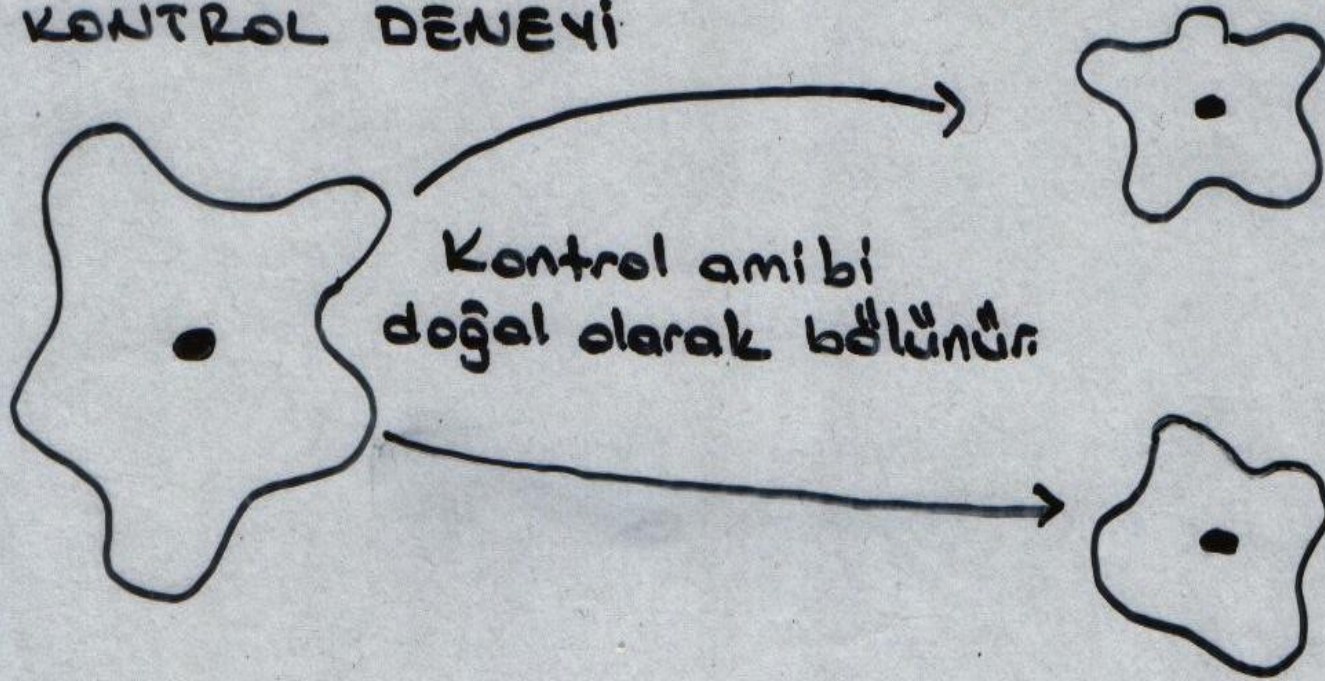 KONTROL DENEYİ
Kontrol amibi
doğal olarak bölünür.